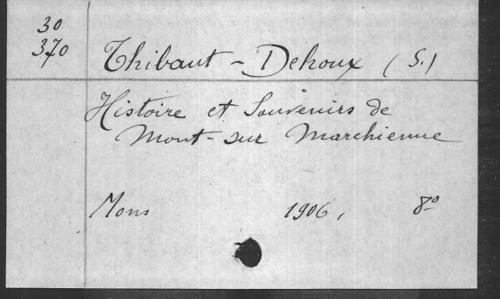 30
370
Thibaut - Dehoux (S.)
Histoire et Souvenirs de
Mont-sur Marchienne
Mons 1906, 8°